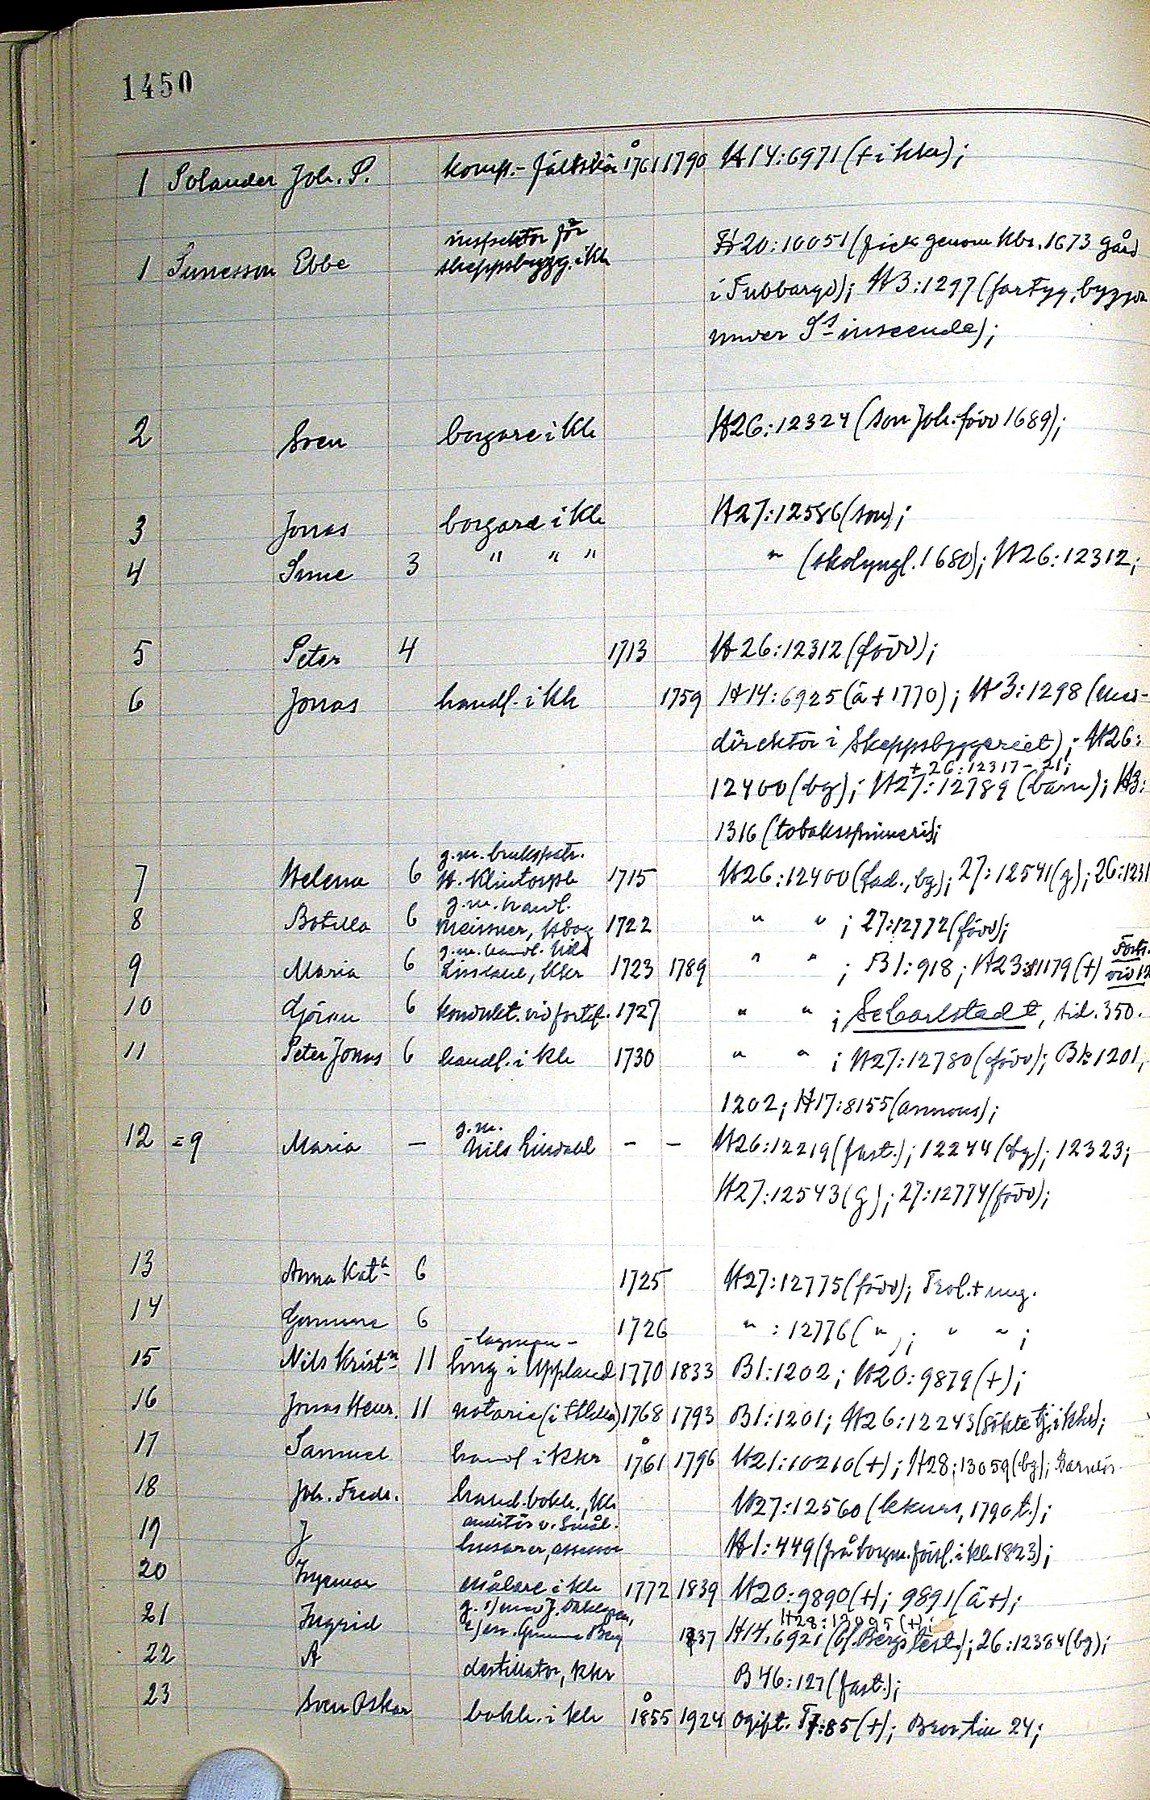 1450
1 Solander Joh. P. komp.-fältskär 1761 1790 H14:6971 (+ i kka);
inspektor för
1 Sunesson Ebbe skeppsbygg. i Kh H20:10051 (fick genom Kbr. 1673 gård
i Fubbarp); H3:1297 (fartyg, byggda
under S:s inseende);
2 Sven borgare i Kh H26:12324 (son Joh. född 1689);
3 Jonas borgare i Kh H27:12586 (son);
4 Sune 3 " " " " (skolyngl. 1680); H26:12312;
5 Peter 4 1713 H26:12312 (född);
6 Jonas handl. i Kh 1759 H14:6925 (ä + 1770); H3:1298 (
direktör i skeppsbyggeriet); H26:
+ 26:12317-21;
12400 (bg); H27:12789 (barn); H3:
1316 (tobaksspinneri);
g.m. brukspatr.
7 Helena 6 H. Klintorph 1715 H26:12400 (fad., bg); 27:12541 (g); 26:1231
g.m. handl.
8 Botilla 6 Meissner, 1722 " " ; 27:12772 (född);
g.m. handl. Nils
9 Maria 6 Lindahl, Khr 1723 1789 " " ; B1:918; H23:11179 (+)
10 Göran 6 kondukt. vid fortif. 1727 " " ; Se Carlstadt, sid. 350.
11 Peter Jonas 6 handl. i Kh 1730 " " ; H27:12780 (född); B1:1201,
1202; H17:8155 (annons);
g.m.
12 =9 Maria - Nils Lindahl - - H26:12219 (fast.); 12244 (bg); 12323;
H27:12543 (g); 27:12774 (född);
13 Anna Kat:a 6 1725 H27:12775 (född); Trol. + ung.
14 Gunnar 6 1726 " : 12776 ( " ); " " ;
- lagman -
15 Nils Krist:n 11 i Uppland 1770 1833 B1:1202; H20:9879 (+);
16 Jonas Henr. 11 notarie (i Sthlm) 1768 1793 B1:1201; H26:12243 (sökte tj. i Khr);
17 Samuel handl i Khr 1761 1796 H21:10210 (+); H28:13059 (bg); Barnlös
18 Joh. Fredr. hand.bokh., Kh H27:12560 (kkurs, 1790 t.);
auditör v. Smål.
19 J husarer, assessor H1:449 (på borgm. försl. i Kh 1823);
20 Ingemar målare i Kh 1772 1839 H20:9890 (+); 9891 (ä +);
g. 1) med J.
H28:13095 (+);
21 Ingrid 2) m. Gunnar Berg 1737 H14:6921 (Berg's test.); 26:12384 (bg);
22 A destillator, Khr B46:127 (fast.);
23 Sven Oskar bokh. i Kh 1855 1924 Ogift. T7:85 (+); Bror till 24;